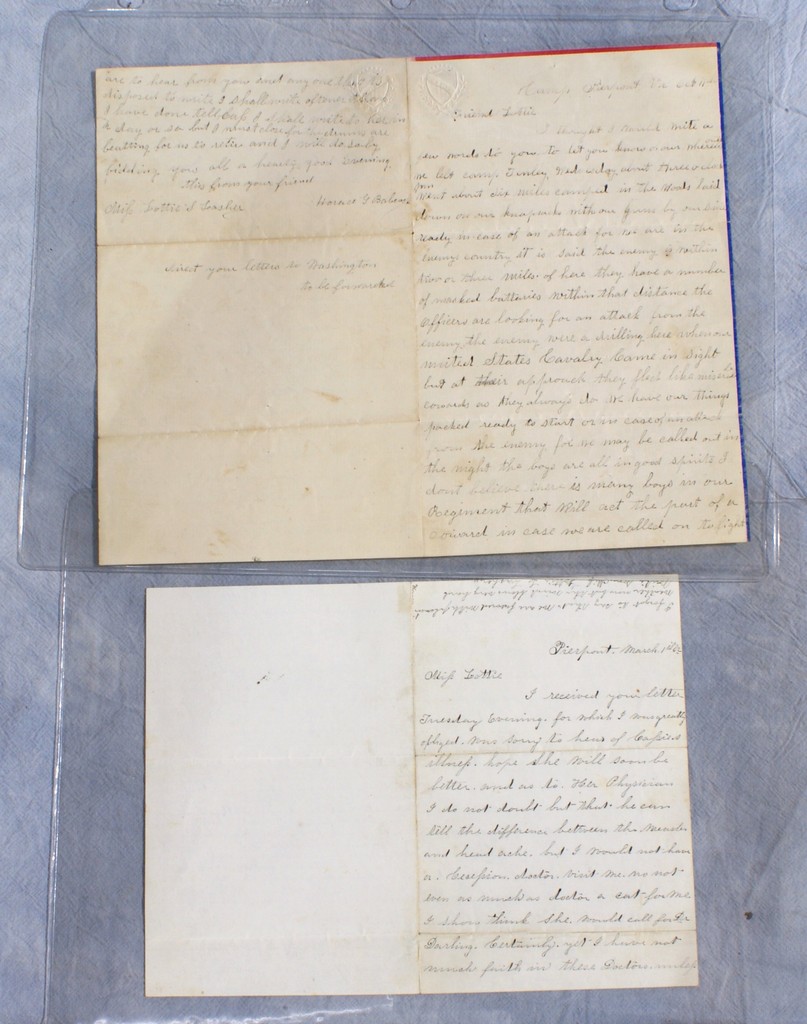 are to hear from you and any one that is
disposed to write I shall write oftener than
I have done tell Cass I shall write to her in
a day or so but I must close for the drums are
beating for us to retire and I will do so by
bidding you all a hearty good Evening
this from your friend
Miss Lottie S Lasher Horace G
direct your letters to Washington
to be forwarded
Camp Pierpont Va Oct 11th
Friend Lottie
I thought I would write a
few words to you to let you know our
we left camp Tenley Wednesday about three o clock
went about six miles camped in the woods laid
down on our knapsacks with our guns by our side
ready in case of an attack for we are in the
enemys country it is said the enemy is within
two or three miles of here they have a number
of masked batteries within that distance the
officers are looking for an attack from the
enemy the enemy were a drilling here when our
united States Cavalry Came in Sight
but at their approach they fled like
cowards as they always do we have our things
packed ready to start or in case of an attack
from the enemy for we may be called out in
the night the boys are all in good spirits I
dont believe there is many boys in our
Regement that will act the part of a
coward in case we are called on to fight
Pierpont. March 1st
Miss Lottie
I received your letter
Tuesday Evening. for which I was greatly
obliged. was sorry to hear of Cassies
illness. hope she will soon be
better. and as to. Her Physician
I do not doubt but that he can
tell the difference between the Measles
and head ache. but I would not have
a. Secession. doctor. visit me. no not
even as much as doctor a cat for me
I should think she. would call for Dr
Darling. Certainly. yet I have not
much faith in these Doctors. unless